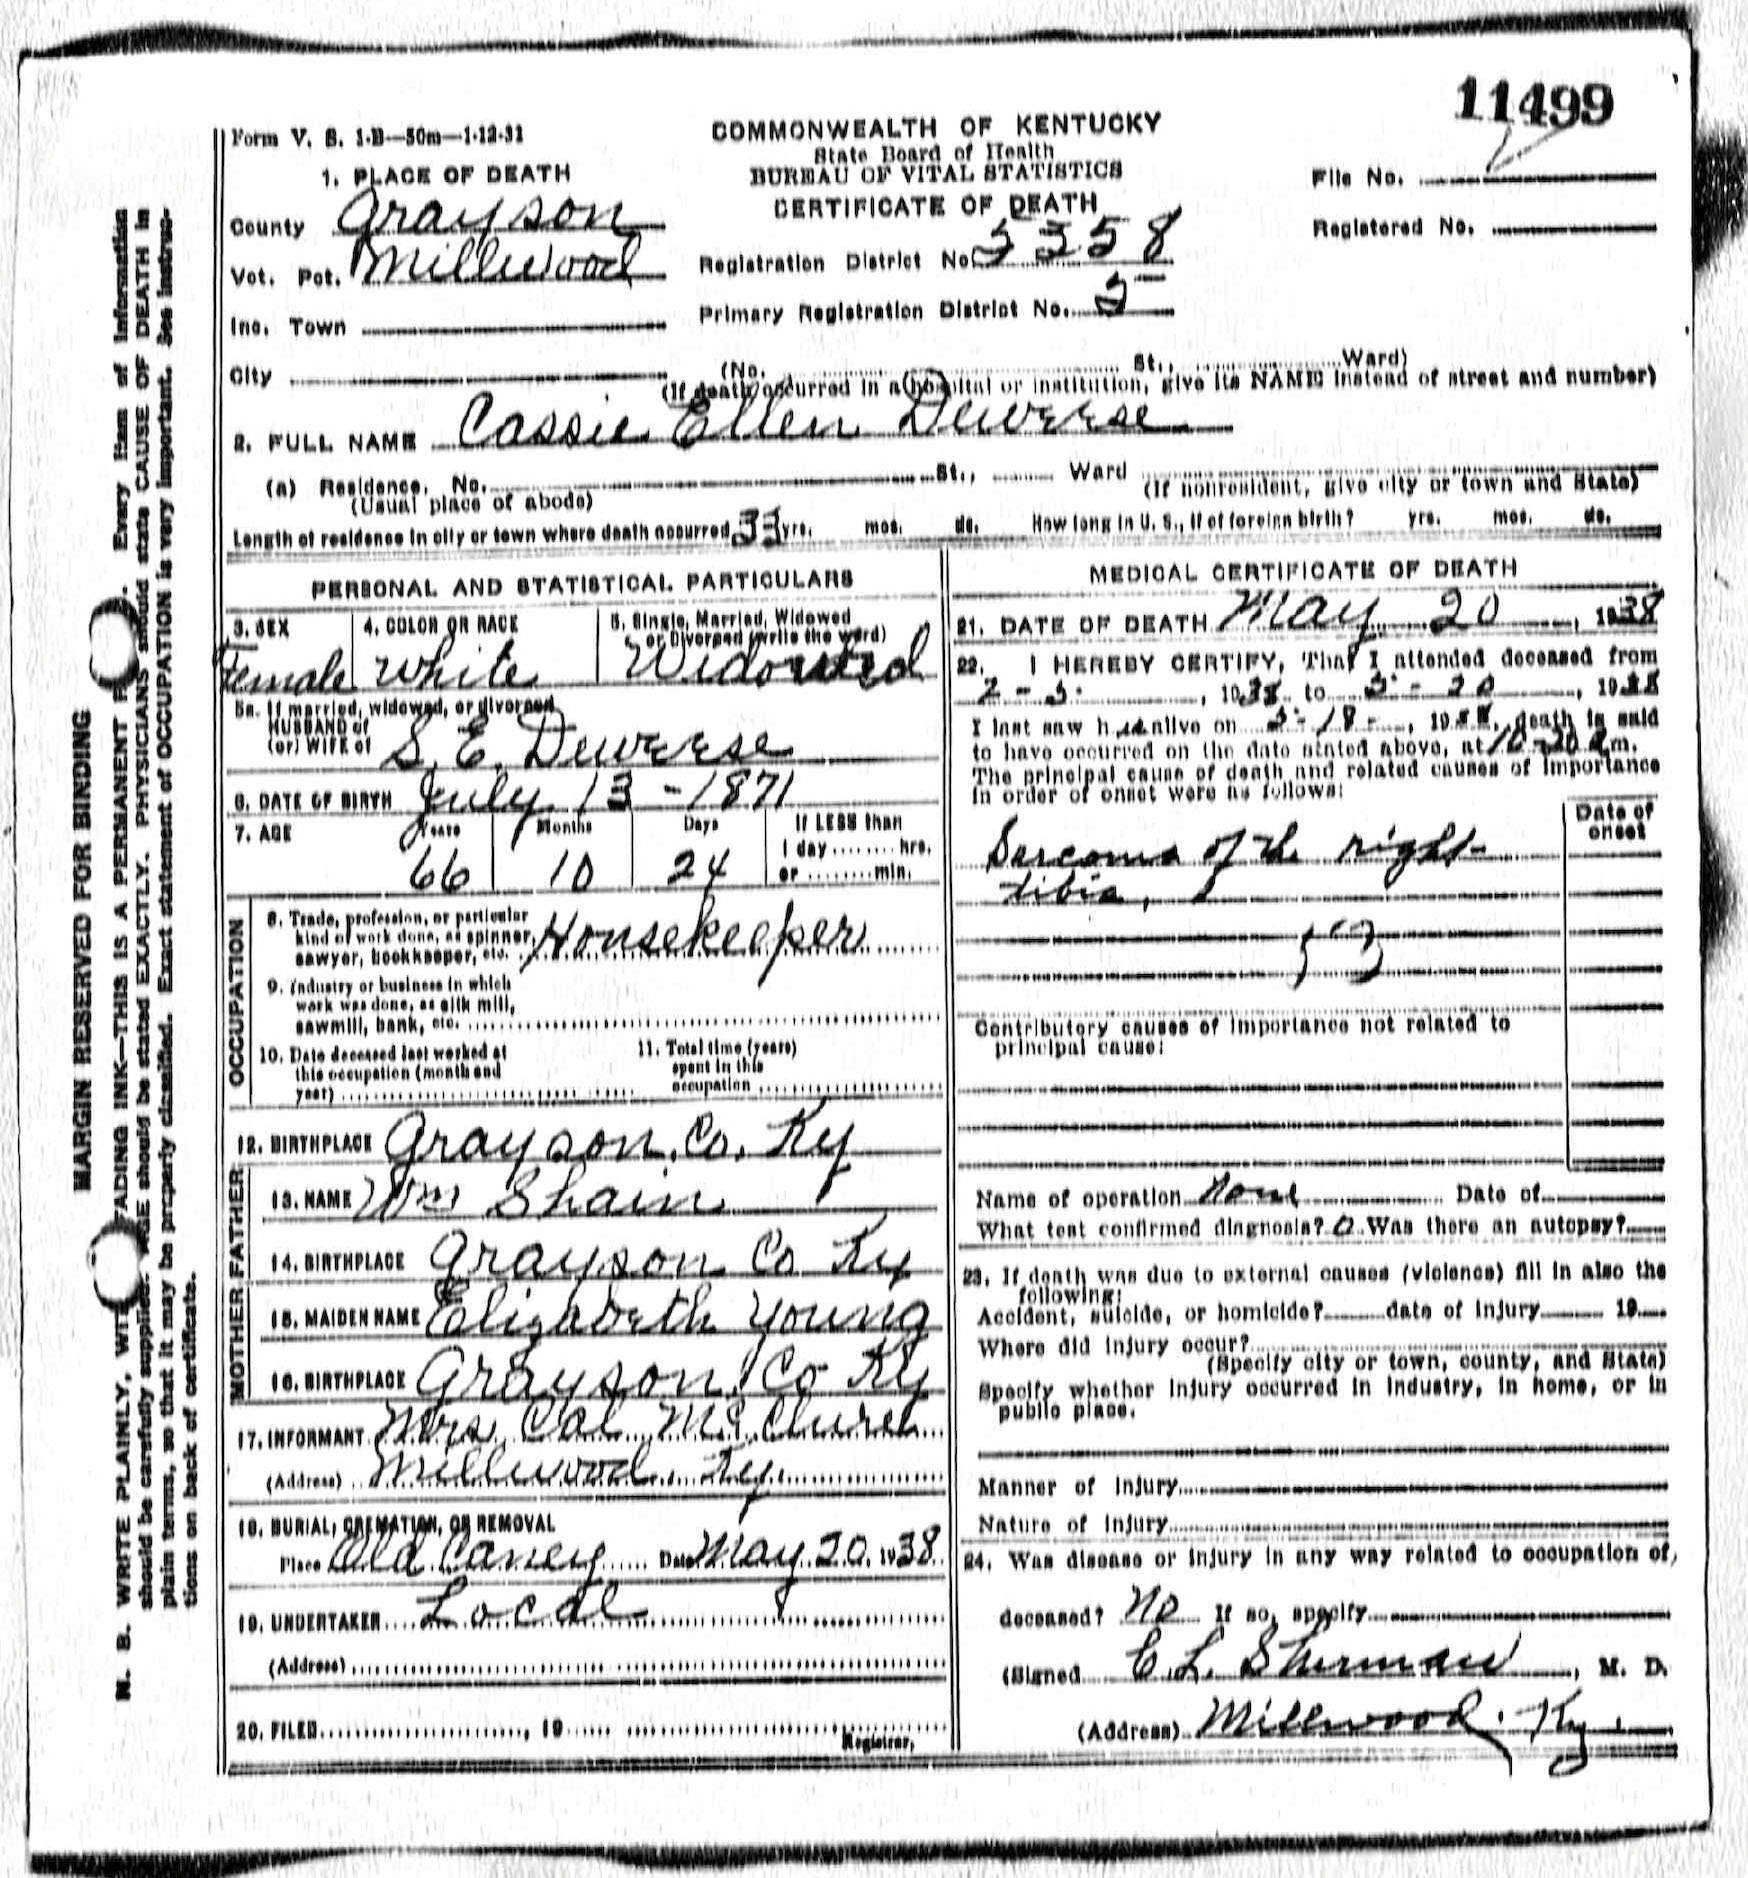 11499
Form V. S. 1-B—50m—1-12-31
COMMONWEALTH OF KENTUCKY
State Board of Health
BUREAU OF VITAL STATISTICS
CERTIFICATE OF DEATH
File No.
Registered No.
1. PLACE OF DEATH
County Grayson
Vot. Pct. Millwood
Inc. Town
City
Registration District No. 5358
Primary Registration District No.
(No. St., Ward)
(If death occurred in a hospital or institution, give its NAME instead of street and number)
2. FULL NAME Cassie Ellen Deweese
(a) Residence. No. St., Ward
(Usual place of abode)
(If nonresident, give city or town and State)
Length of residence in city or town where death occurred yrs. mos. ds. How long in U. S., if of foreign birth? yrs. mos. ds.
PERSONAL AND STATISTICAL PARTICULARS
3. SEX
Female
4. COLOR OR RACE
White
5. Single, Married, Widowed
or Divorced (write the word)
Widowed
5a. If married, widowed, or divorced
HUSBAND of
(or) WIFE of S. E. Deweese
6. DATE OF BIRTH July 13-1871
7. AGE Years Months Days If LESS than
66 10 24 1 day hrs.
or min.
OCCUPATION
8. Trade, profession, or particular
kind of work done, as spinner,
sawyer, bookkeeper, etc. Housekeeper
9. Industry or business in which
work was done, as silk mill,
sawmill, bank, etc.
10. Date deceased last worked at
this occupation (month and
year)
11. Total time (years)
spent in this
occupation
12. BIRTHPLACE Grayson, Co. Ky
FATHER
13. NAME Wm Shain
14. BIRTHPLACE Grayson Co Ky
MOTHER
15. MAIDEN NAME Elizabeth Young
16. BIRTHPLACE Grayson Co Ky
17. INFORMANT Mrs Cal McClure
(Address) Millwood, Ky.
18. BURIAL, CREMATION, OR REMOVAL
Place Old Caney Date May 20, 1938
19. UNDERTAKER Local
(Address)
20. FILED , 19
Registrar.
MEDICAL CERTIFICATE OF DEATH
21. DATE OF DEATH May 20, 1938
22. I HEREBY CERTIFY, That I attended deceased from
2-5-, 1938 to 5-20, 1938
I last saw h er alive on 5-18-, 1938, death is said
to have occurred on the date stated above, at 10-20 a m.
The principal cause of death and related causes of importance
in order of onset were as follows:
Date of
onset
Sarcoma of the right
tibia,
53
Contributory causes of importance not related to
principal cause:
Name of operation None Date of
What test confirmed diagnosis? 0 Was there an autopsy?
23. If death was due to external causes (violence) fill in also the
following:
Accident, suicide, or homicide? date of injury 19
Where did injury occur?
(Specify city or town, county, and State)
Specify whether injury occurred in industry, in home, or in
public place.
Manner of injury
Nature of injury
24. Was disease or injury in any way related to occupation of
deceased? No If so, specify
(Signed E. L. Sherman, M. D.
(Address) Millwood, Ky.
MARGIN RESERVED FOR BINDING
N. B. WRITE PLAINLY, WITH FADING INK—THIS IS A PERMANENT R . Every item of information
should be carefully supplied. AGE should be stated EXACTLY. PHYSICIANS should state CAUSE OF DEATH in
plain terms, so that it may be properly classified. Exact statement of OCCUPATION is very important. See instruc-
tions on back of certificate.